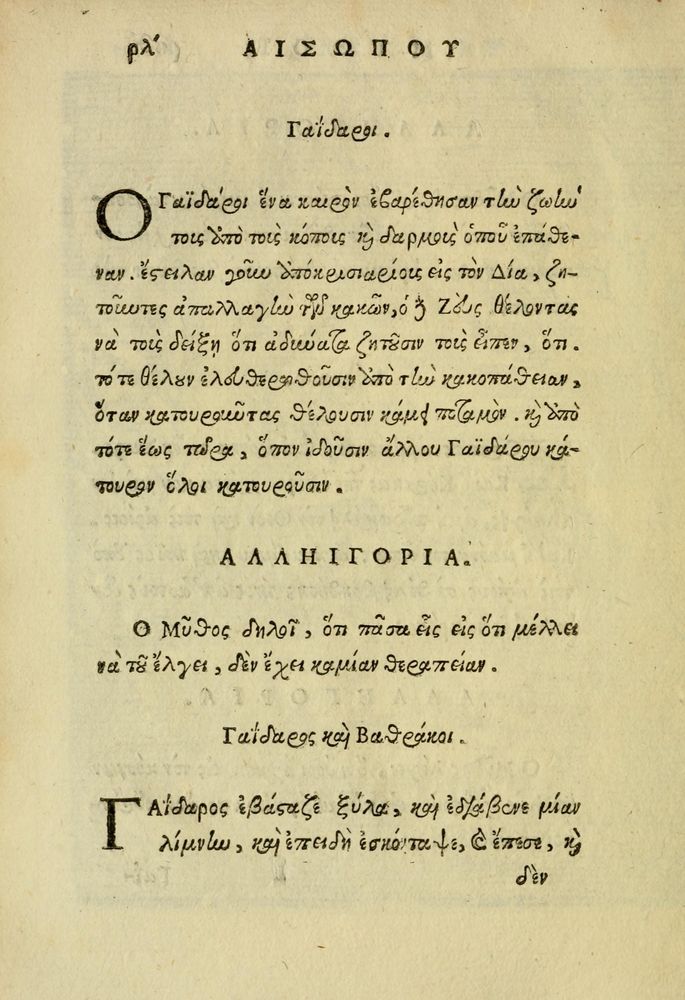 ρλ΄ ΑΙΣΩΠΟΥ
Γαΐδαροι.
Ο Γαϊδάροι ἕνα καιρὸν ἐβαρέθησαν τὴν ζωήν
τοις ὑπὸ τοὶς κόποις καὶ δαρμοὶς ὁποῦ ἐπάθε-
ναν. ἔστειλαν γοῦν ὑπόκρισιαρίους εἰς τὸν Δία, ζη-
τοῦντες ἀπαλλαγὴν τῶν κακῶν, ὁ δὲ Ζεὺς θέλοντας
νὰ τοὶς δείξῃ ὅτι ἀδύνατα ζητοῦσιν τοὶς εἶπεν, ὅτι.
τότε θέλουν ἐλευθερωθοῦσιν ὑπὸ τὴν κακοπάθειαν,
ὅταν κατουρῶντας θέλουσιν κάμει ποταμὸν. καὶ ὑπὸ
τότε ἕως τώρα, ὅπον ἰδοῦσιν ἄλλου Γαϊδάρου κά-
τουρον ὅλοι κατουροῦσιν.
ΑΛΛΗΙΓΟΡΙΑ.
Ο Μῦθος δηλοῖ, ὅτι πᾶσα εἷς εἰς ὅτι μέλλει
νὰ τοῦ ἔλγει, δὲν ἔχει καμίαν θεραπείαν.
Γαΐδαρος καὶ Βαθράκοι.
ΓΑΐδαρος ἐβάσταζε ξύλα, καὶ ἐδιάβαινε μίαν
λίμνην, καὶ ἐπειδὴ ἐσκόνταψε, καὶ ἔπεσε, καὶ
δὲν